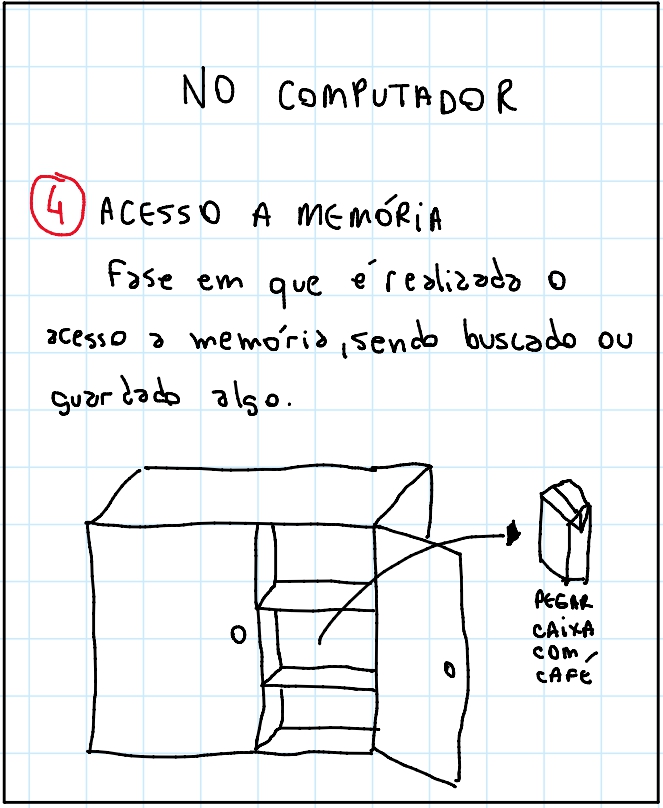 NO COMPUTADOR
4 ACESSO A MEMÓRIA
Fase em que é realizada o
acesso a memória, sendo buscado ou
guardado algo.
PEGAR
CAIXA
COM
CAFÉ